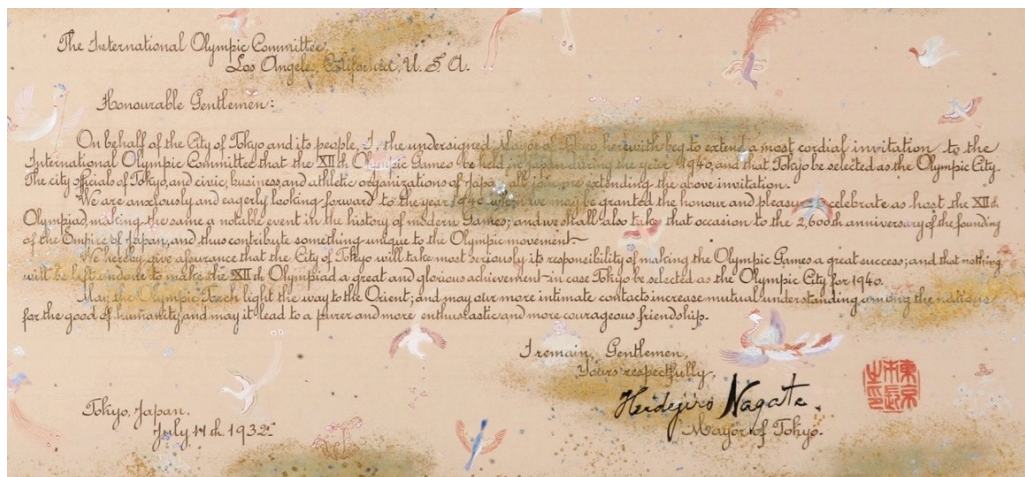 The International Olympic Committee,
Los Angeles, California, U. S. A.
Honourable Gentlemen:
On behalf of the City of Tokyo and its people, I, the undersigned Mayor of Tokyo, herewith beg to extend a most cordial invitation to the
International Olympic Committee that the XIIth Olympic Games be held in Japan during the year 1940, and that Tokyo be selected as the Olympic City.
The city officials of Tokyo, and civic, business, and athletic organizations of Japan all join me extending the above invitation.
We are anxiously and eagerly looking forward to the year 1940 when we may be granted the honour and pleasure to celebrate as host the XIIth
Olympiad, making the same a notable event in the history of modern Games; and we shall also take that occasion to the 2,600th anniversary of the founding
of the Empire of Japan, and thus contribute something unique to the Olympic movement—
We hereby give assurance that the City of Tokyo will take most seriously its responsibility of making the Olympic Games a great success; and that nothing
will be left undone to make the XIIth Olympiad a great and glorious achievement—in case Tokyo be selected as the Olympic City for 1940.
May the Olympic Torch light the way to the Orient; and may our more intimate contacts increase mutual understanding among the nations
for the good of humanity, and may it lead to a purer and more enthusiastic and more courageous friendship.
I remain, Gentlemen,
Yours respectfully,
Heidejiro Nagata.
Mayor of Tokyo.
東京市長之印
Tokyo, Japan.
July 14th. 1932.